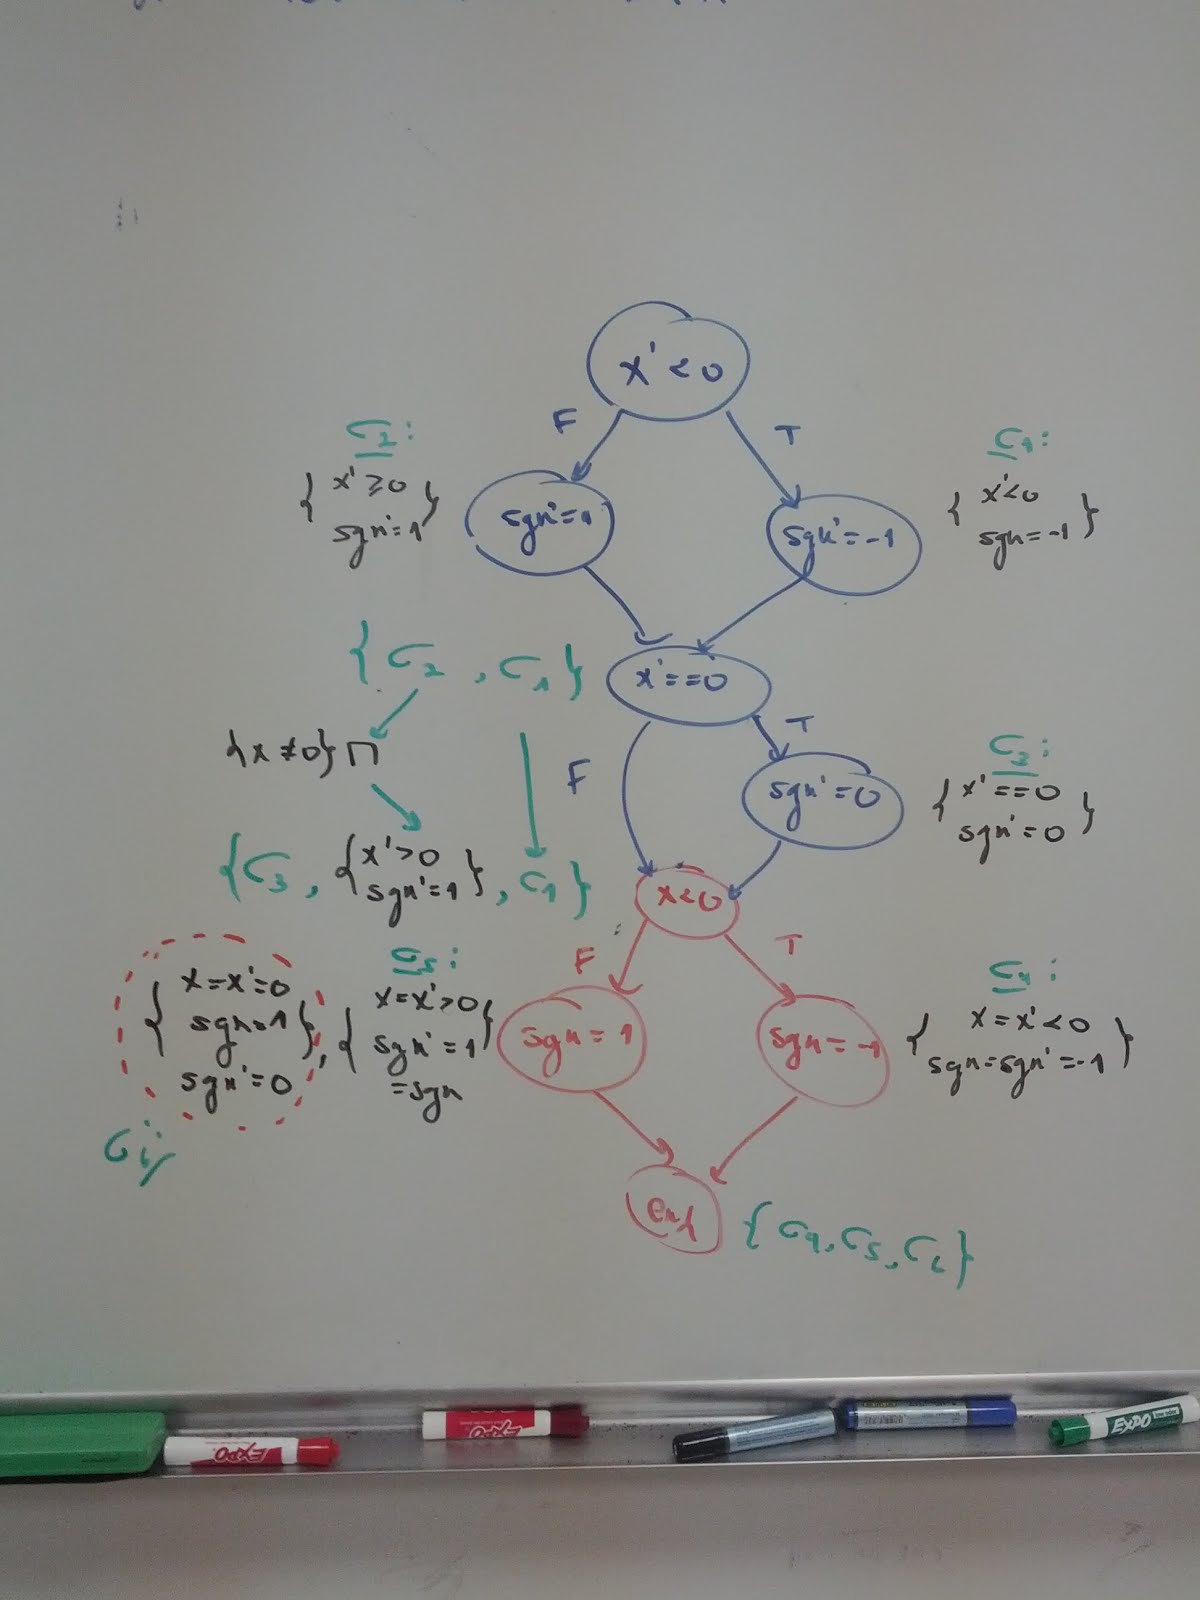 x' < 0
F
T
σ2:
{ x' ≥ 0
sgn' = 1 }
sgn' = 1
sgn' = -1
σ1:
{ x' < 0
sgn = -1 }
{ σ2 , σ1 }
x' == 0
{x ≠ 0} ⊓
F
T
sgn' = 0
σ3:
{ x' == 0
sgn' = 0 }
{ σ3 , { x' > 0
sgn' = 1 } , σ1 }
x < 0
F
T
{ x = x' = 0
sgn = 1
sgn' = 0 } ,
σ5:
{ x = x' > 0
sgn' = 1
= sgn }
sgn = 1
sgn = -1
σ4:
{ x = x' < 0
sgn = sgn' = -1 }
end
{ σ4, σ5, σ6 }
EXPO
EXPO
EXPO